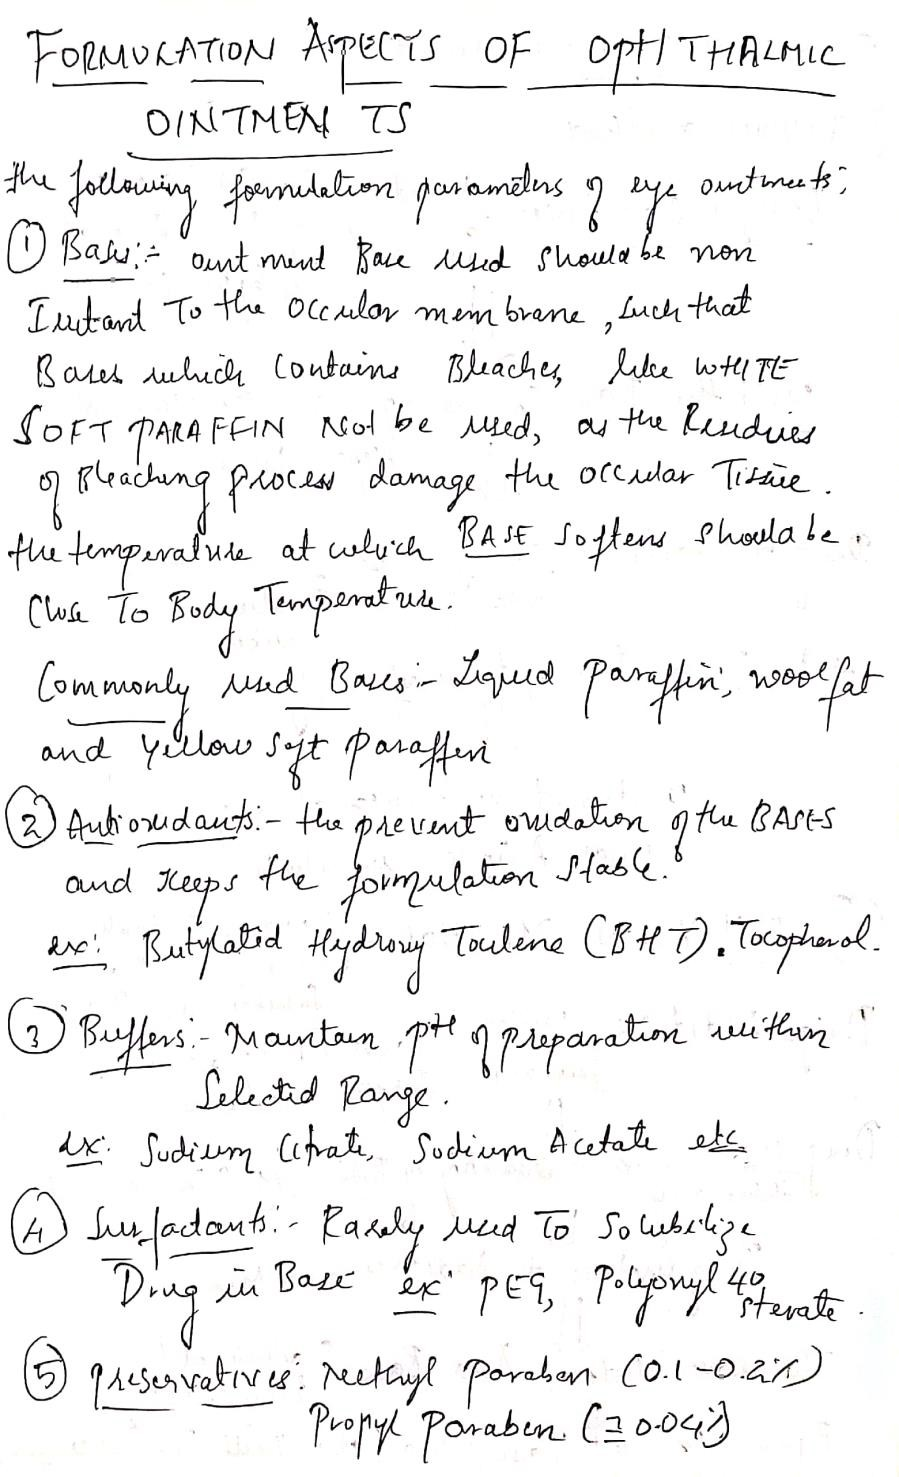 FORMULATION ASPECTS OF OPHTHALMIC
OINTMENTS
the following formulation parameters of eye ointments;
① Bases:- ointment Base used should be non
Irritant To the occular membrane, such that
Bases which contains Bleaches, like WHITE
SOFT PARAFFIN Not be used, as the Residues
of Bleaching process damage the occular Tissue.
the temperature at which BASE softens should be
Close To Body Temperature.
Commonly used Bases:- Liquid paraffin, wool fat
and yellow soft paraffin
② Antioxidants:- the prevent oxidation of the BASES
and Keeps the formulation stable.
ex: Butylated Hydroxy Toulene (BHT), Tocopherol.
③ Buffers:- Maintain pH of preparation within
Selected Range.
ex: Sodium Citrate, Sodium Acetate etc
④ Surfactants:- Rarely used To solubilize
Drug in Base ex: PEG, Polyoxyl 40
sterate.
⑤ preservatives: Methyl Paraben (0.1-0.2%)
Propyl Paraben. (≅ 0.04%)